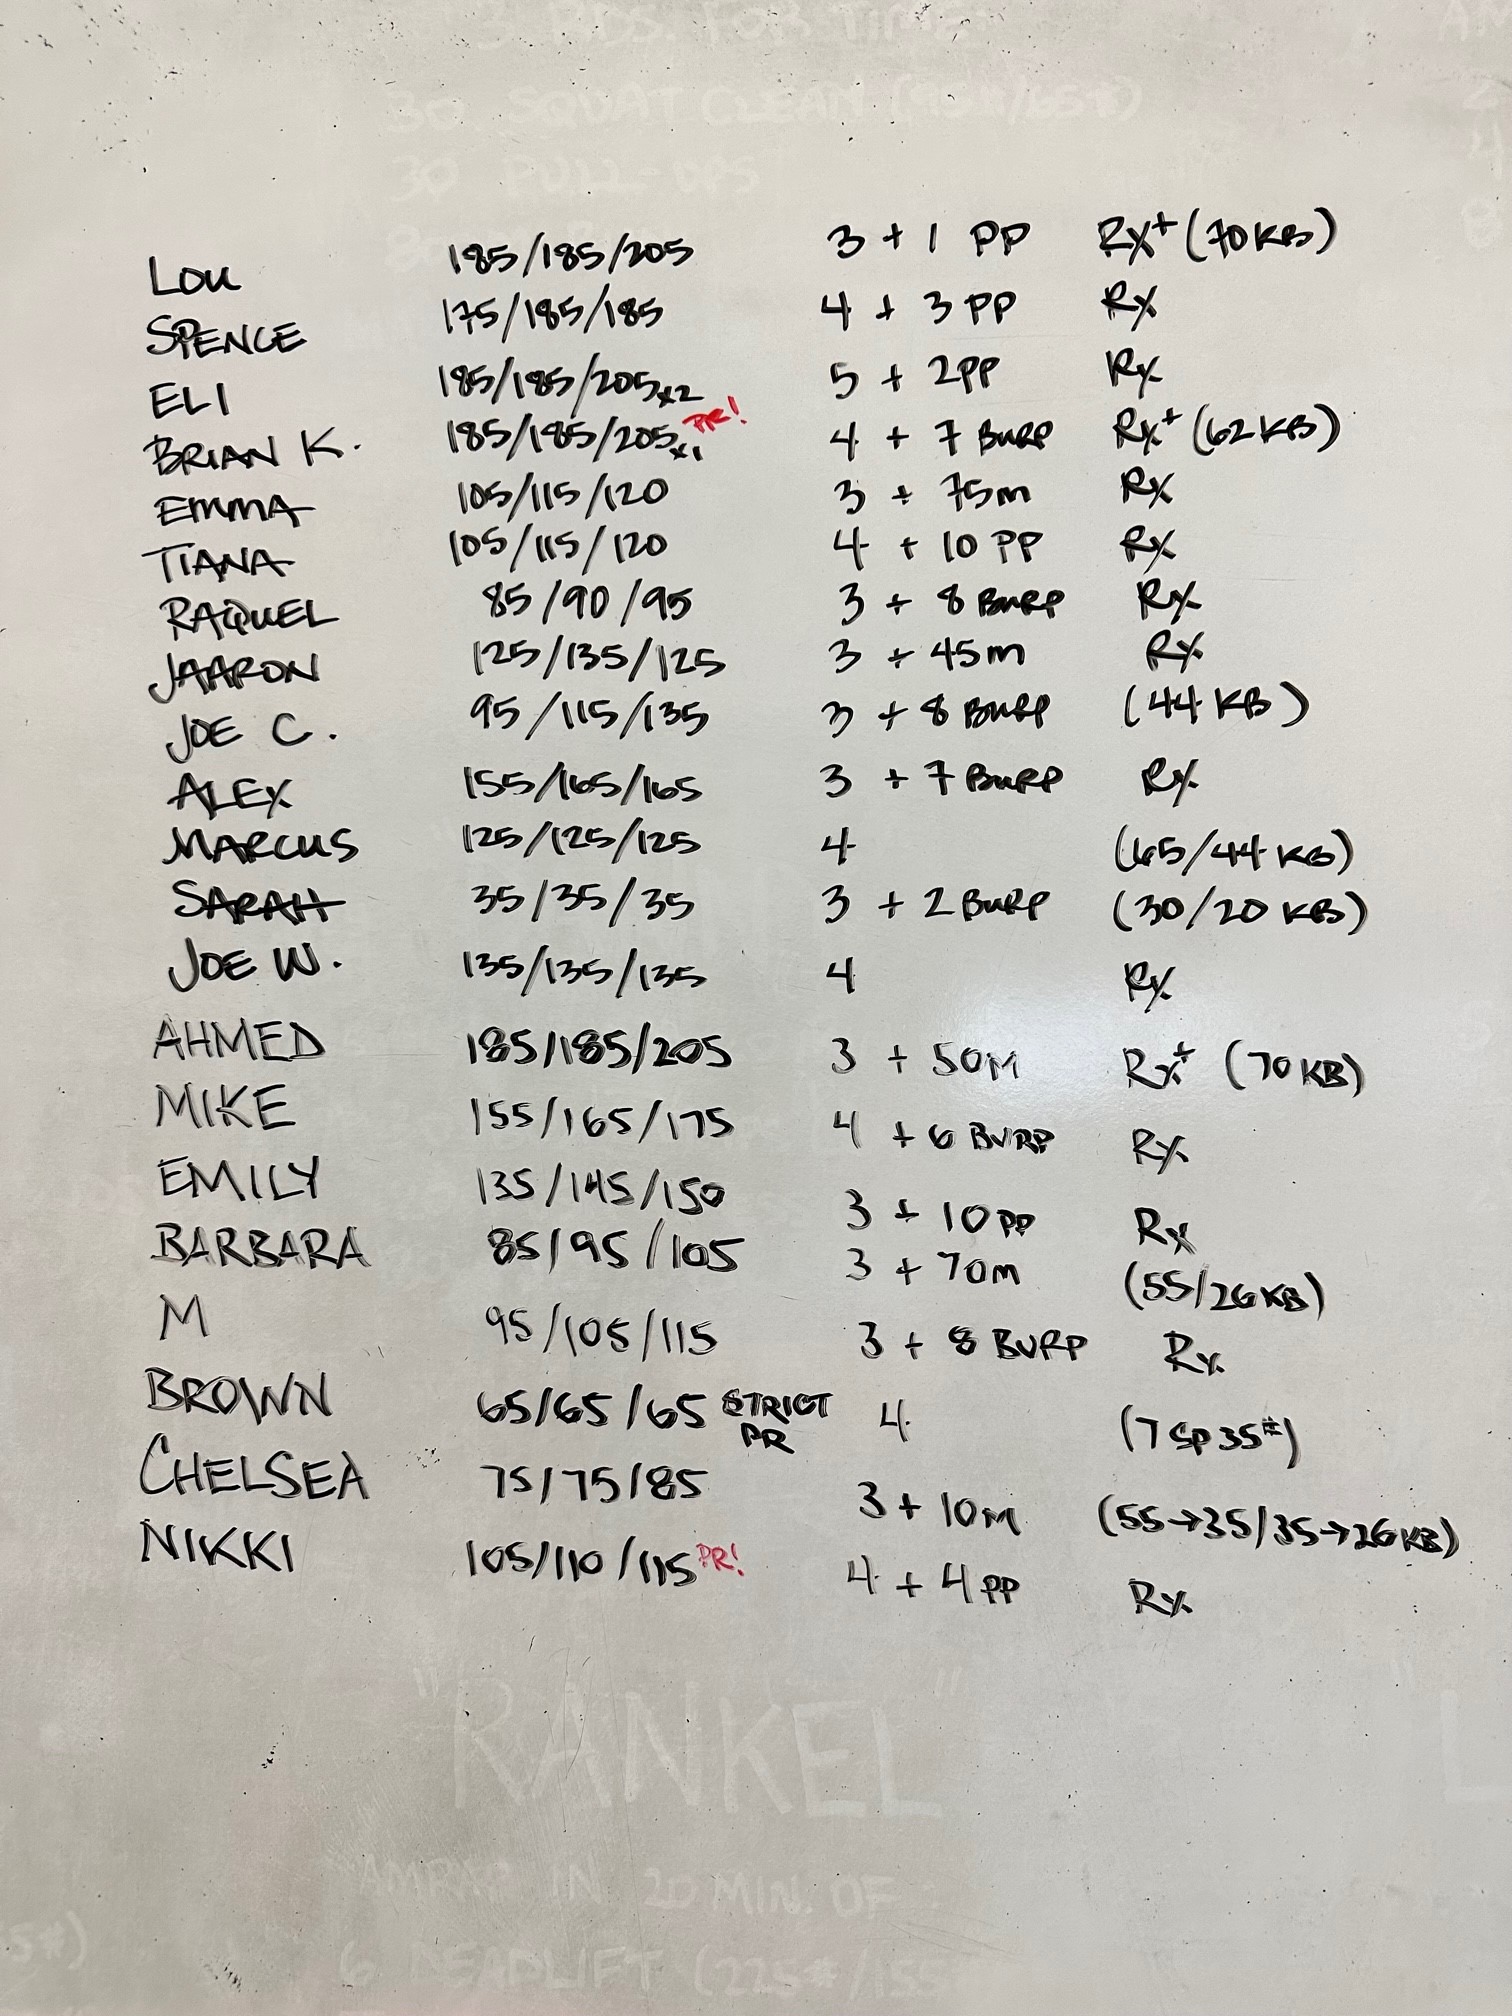 3 RDS. FOR TIME
30 SQUAT CLEAN (95#/65#)
30 PULL-UPS
LOU 185/185/205 3 + 1 PP RX+ (70KB)
SPENCE 175/185/185 4 + 3 PP RX
ELI 185/185/205x2 5 + 2PP RX
BRIAN K. 185/185/205x1 PR! 4 + 7 BURP RX+ (62KB)
EMMA 105/115/120 3 + 75m RX
TIANA 105/115/120 4 + 10 PP RX
RAQUEL 85/90/95 3 + 8 BURP RX
JAARON 125/135/125 3 + 45m RX
JOE C. 95/115/135 3 + 8 BURP (44 KB)
ALEX 155/165/165 3 + 7 BURP RX
MARCUS 125/125/125 4 (65/44 KB)
SARAH 35/35/35 3 + 2 BURP (30/20 KB)
JOE W. 135/135/135 4 RX
AHMED 185/185/205 3 + 50M RX+ (70 KB)
MIKE 155/165/175 4 + 6 BURP RX
EMILY 135/145/150 3 + 10 PP RX
BARBARA 85/95/105 3 + 70m (55/26KB)
M 95/105/115 3 + 8 BURP RX
BROWN 65/65/65 STRICT PR 4 (7 SP 35#)
CHELSEA 75/75/85 3 + 10M (55→35/35→26KB)
NIKKI 105/110/115 PR! 4 + 4 PP RX
"RANKEL"
AMRAP IN 20 MIN. OF:
6 DEADLIFT (225#/155